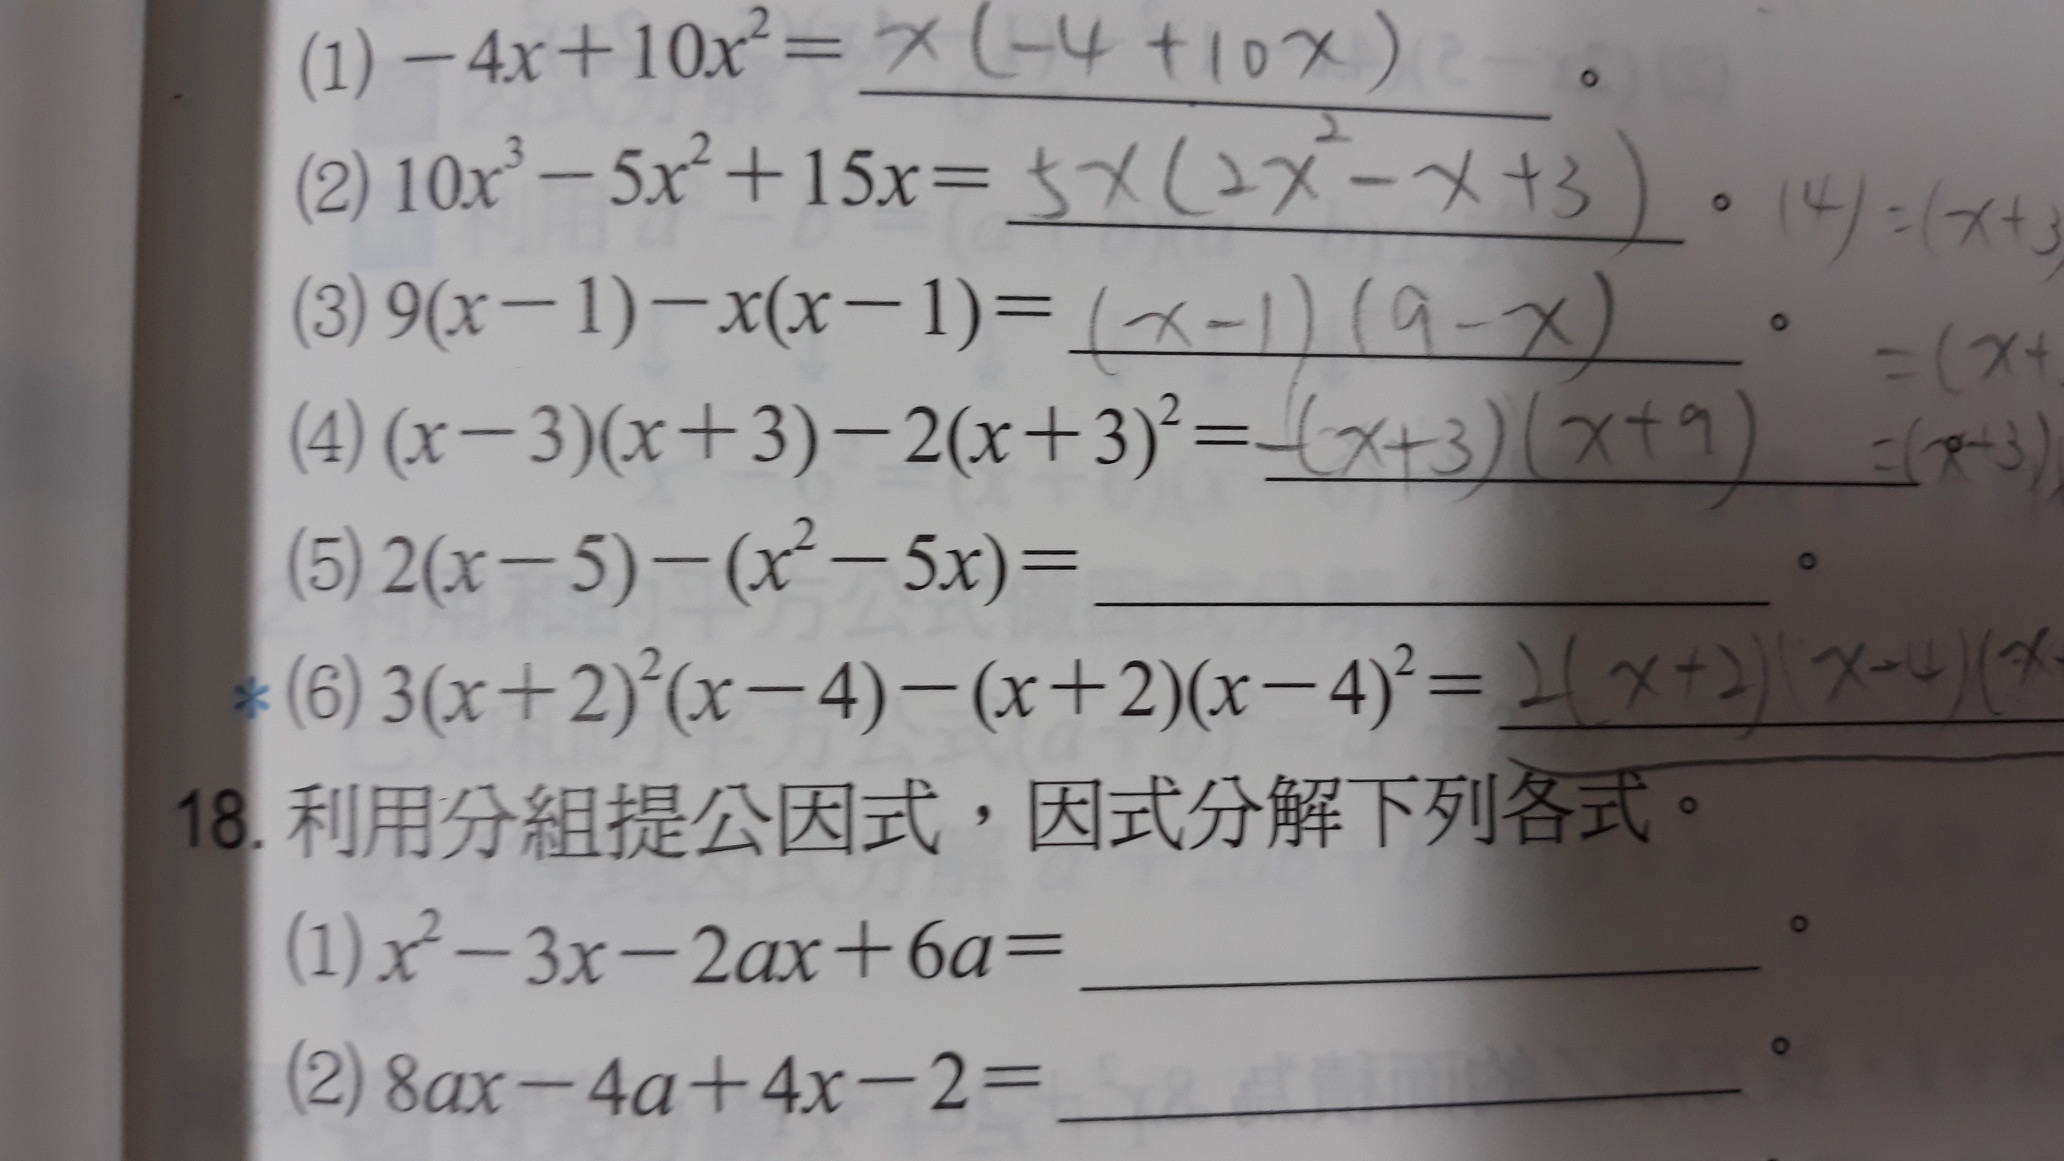 (1) −4x+10x²= x(-4+10x) 。
(2) 10x³−5x²+15x= 5x(2x²-x+3) 。 (4)=(x+3
(3) 9(x−1)−x(x−1)= (x-1)(9-x) 。 =(x+
(4) (x−3)(x+3)−2(x+3)²= -(x+3)(x+9) =(x+3)
(5) 2(x−5)−(x²−5x)= 。
*(6) 3(x+2)²(x−4)−(x+2)(x−4)²= 2(x+2)(x-4)(x
18. 利用分組提公因式，因式分解下列各式。
(1) x²−3x−2ax+6a= 。
(2) 8ax−4a+4x−2= 。